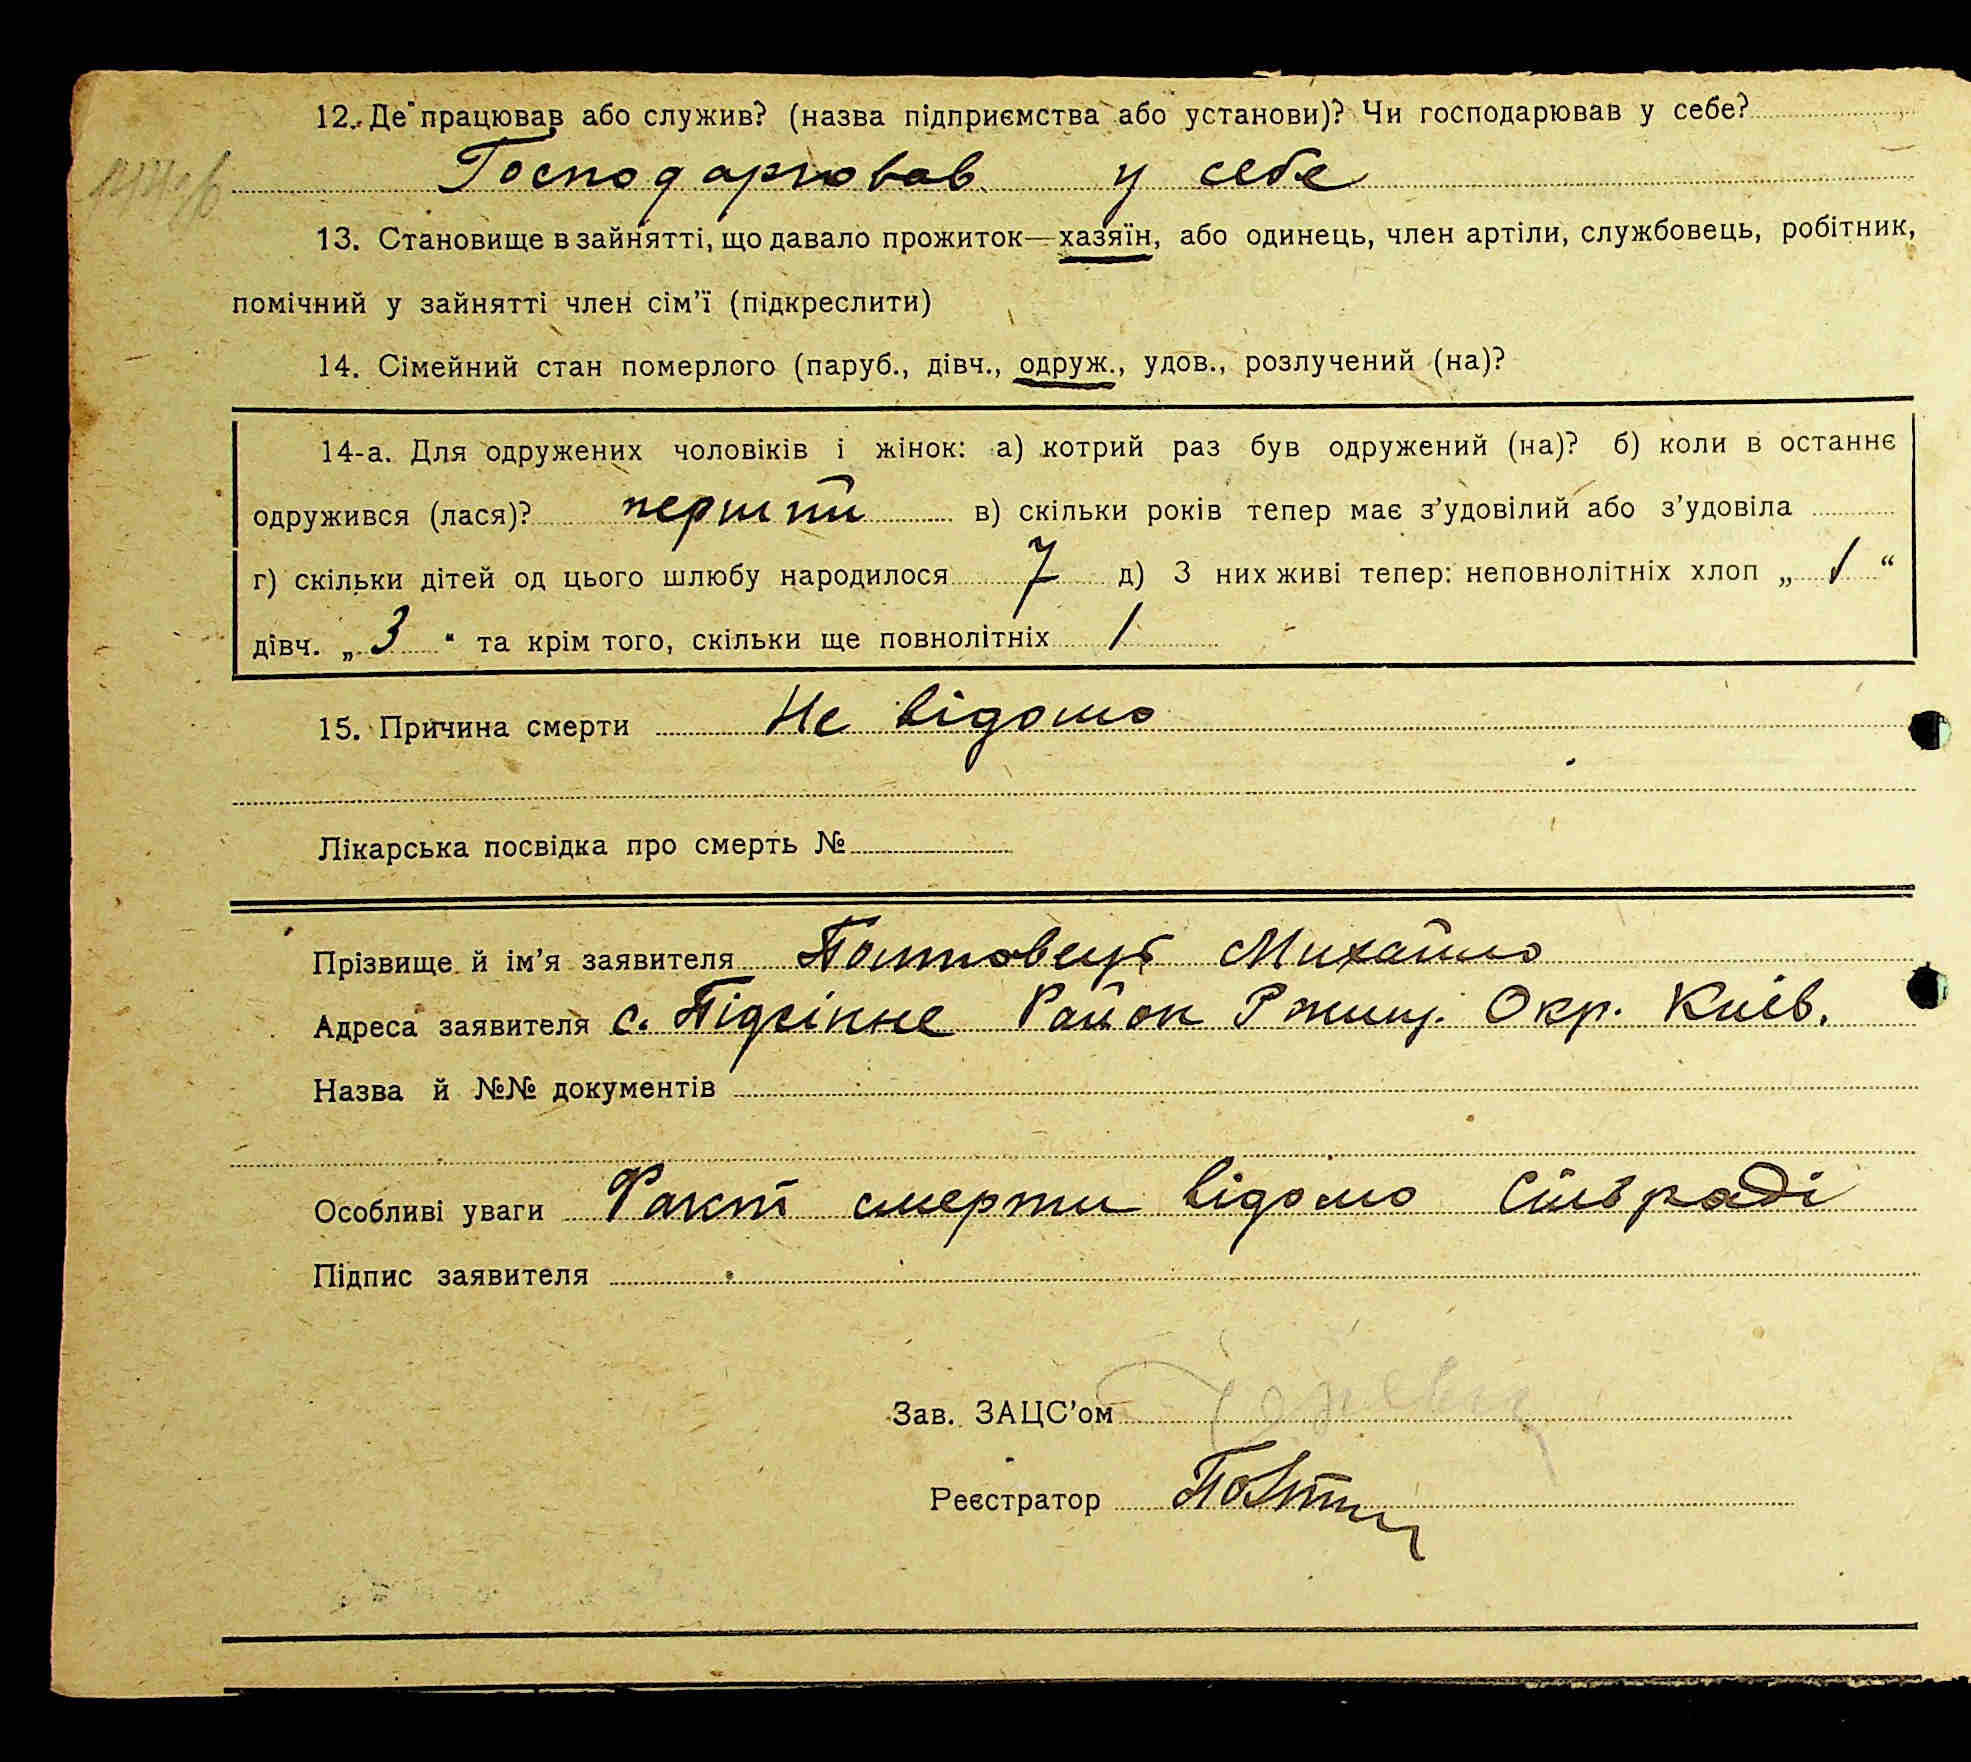 12. Де працював або служив? (назва підприємства або установи)? Чи господарював у себе?
Господарював у себе
13. Становище в зайнятті, що давало прожиток—хазяїн, або одинець, член артіли, службовець, робітник,
помічний у зайнятті член сім’ї (підкреслити)
14. Сімейний стан померлого (паруб., дівч., одруж., удов., розлучений (на)?
14-а. Для одружених чоловіків і жінок: а) котрий раз був одружений (на)? б) коли в останнє
одружився (лася)? перший в) скільки років тепер має з’удовілий або з’удовіла
г) скільки дітей од цього шлюбу народилося 7 д) З них живі тепер: неповнолітніх хлоп „ 1 “
дівч. „ 3 “ та крім того, скільки ще повнолітніх 1
15. Причина смерти Не відомо
Лікарська посвідка про смерть №
Прізвище й ім’я заявителя Михайло
Адреса заявителя с. Підсінне Район Ржищ. Окр. Київ.
Назва й №№ документів
Особливі уваги Факт смерти відомо Сільраді
Підпис заявителя
Зав. ЗАЦС’ом
Реєстратор